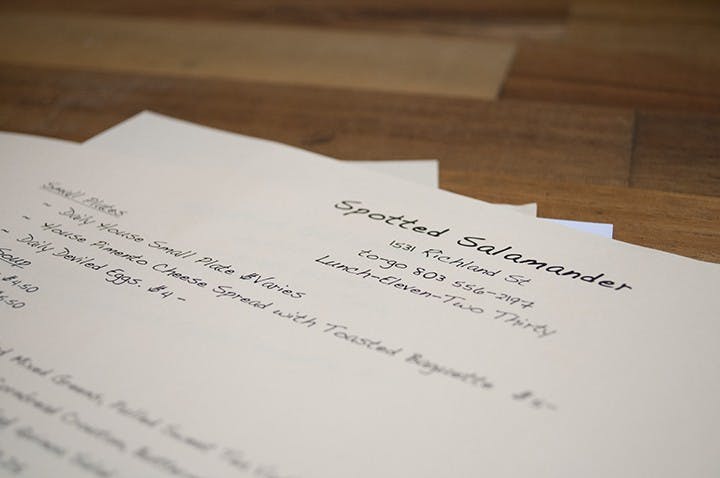 Spotted Salamander
1531 Richland St
to-go 803 556-2197
Lunch-Eleven-Two Thirty
Small Plates
- Daily House Small Plate $Varies
- House Pimento Cheese Spread with Toasted Baguette
- Daily Deviled Eggs. $4-
Soup
$4.50
Mixed Greens, Pulled Sweet Tea